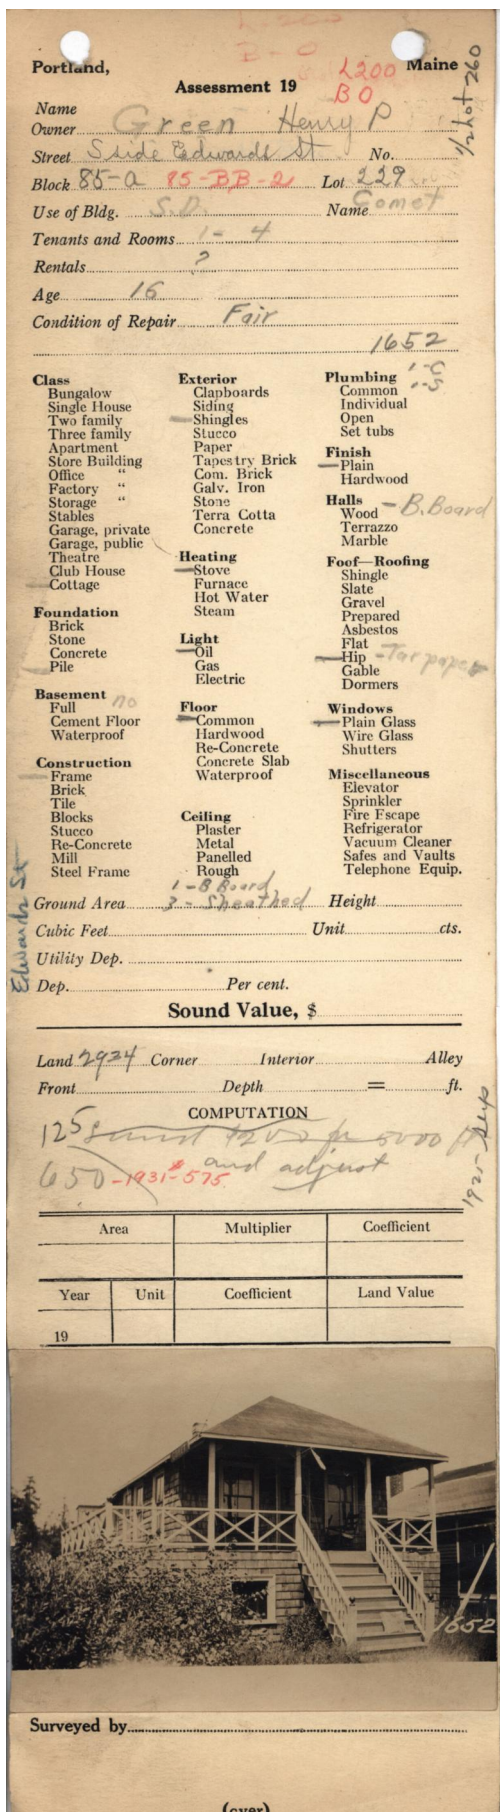 L-200
B-0
L200
B0
Portland, Maine
Assessment 19
1/2 Lot 260
Name
Owner Green Henry P
Street S side Edwards St No.
Block 85-a 85-BB-2 Lot 229
Use of Bldg. S.D. Name Comet
Tenants and Rooms 1 - 4
Rentals ?
Age 16
Condition of Repair Fair
1652
Class
Bungalow
Single House
Two family
Three family
Apartment
Store Building
Office "
Factory "
Storage "
Stables
Garage, private
Garage, public
Theatre
Club House
Cottage
Foundation
Brick
Stone
Concrete
Pile
Basement no
Full
Cement Floor
Waterproof
Construction
Frame
Brick
Tile
Blocks
Stucco
Re-Concrete
Mill
Steel Frame
Exterior
Clapboards
Siding
Shingles
Stucco
Paper
Tapestry Brick
Com. Brick
Galv. Iron
Stone
Terra Cotta
Concrete
Heating
Stove
Furnace
Hot Water
Steam
Light
Oil
Gas
Electric
Floor
Common
Hardwood
Re-Concrete
Concrete Slab
Waterproof
Ceiling
Plaster
Metal
Panelled
Rough
1 - B Board
3 - Sheathed
Plumbing 1-C
Common 1-S
Individual
Open
Set tubs
Finish
Plain
Hardwood
Halls
Wood - B. Board
Terrazzo
Marble
Foof—Roofing
Shingle
Slate
Gravel
Prepared
Asbestos
Flat
Hip - Tar paper
Gable
Dormers
Windows
Plain Glass
Wire Glass
Shutters
Miscellaneous
Elevator
Sprinkler
Fire Escape
Refrigerator
Vacuum Cleaner
Safes and Vaults
Telephone Equip.
Edwards St
Ground Area Height
Cubic Feet Unit cts.
Utility Dep.
Dep. Per cent.
Sound Value, $
Land 2934 Corner Interior Alley
Front Depth = ft.
COMPUTATION
125 Sound $200 for 5000 ft
and adjust
650 - 1931 - $575
1925
Area Multiplier Coefficient
Year Unit Coefficient Land Value
19
1652
Surveyed by
(over)